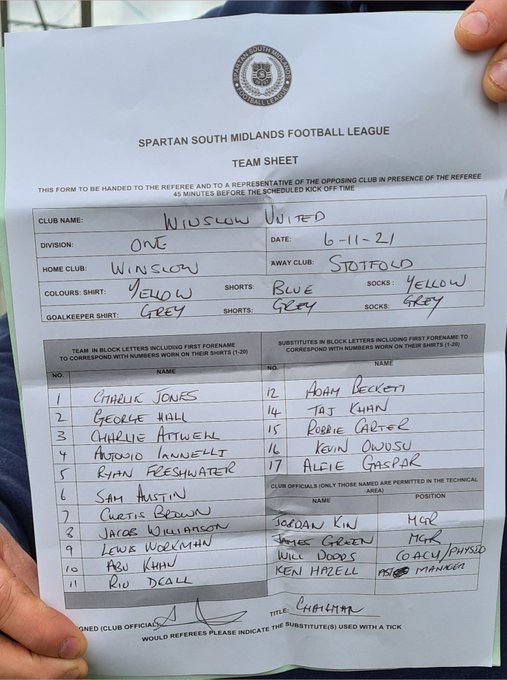 SPARTAN SOUTH MIDLANDS
FOOTBALL LEAGUE
SPARTAN SOUTH MIDLANDS FOOTBALL LEAGUE
TEAM SHEET
THIS FORM TO BE HANDED TO THE REFEREE AND TO A REPRESENTATIVE OF THE OPPOSING CLUB IN PRESENCE OF THE REFEREE
45 MINUTES BEFORE THE SCHEDULED KICK OFF TIME
CLUB NAME: WINSLOW UNITED
DIVISION: ONE DATE: 6-11-21
HOME CLUB: WINSLOW AWAY CLUB: STOTFOLD
COLOURS: SHIRT: YELLOW SHORTS: BLUE SOCKS: YELLOW
GOALKEEPER SHIRT: GREY SHORTS: GREY SOCKS: GREY
TEAM IN BLOCK LETTERS INCLUDING FIRST FORENAME
TO CORRESPOND WITH NUMBERS WORN ON THEIR SHIRTS (1-20)
NO. NAME
1 CHARLIE JONES
2 GEORGE HALL
3 CHARLIE ATTWELL
4 ANTONIO IANNELLI
5 RYAN FRESHWATER
6 SAM AUSTIN
7 CURTIS BROWN
8 JACOB WILLIAMSON
9 LEWIS WORKMAN
10 ABU KHAN
11 RIO DEALL
SUBSTITUTES IN BLOCK LETTERS INCLUDING FIRST FORENAME
TO CORRESPOND WITH NUMBERS WORN ON THEIR SHIRTS (1-20)
NO. NAME
12 ADAM BECKETT
14 TAJ KHAN
15 ROBBIE CARTER
16 KEVIN OWUSU
17 ALFIE GASPAR
CLUB OFFICIALS (ONLY THOSE NAMED ARE PERMITTED IN THE TECHNICAL
AREA)
NAME POSITION
JORDAN KIN MGR
JAMES GREEN MGR
WILL DODDS COACH/PHYSIO
KEN HAZELL MANAGER
SIGNED (CLUB OFFICIAL) TITLE: CHAIRMAN
WOULD REFEREES PLEASE INDICATE THE SUBSTITUTE(S) USED WITH A TICK